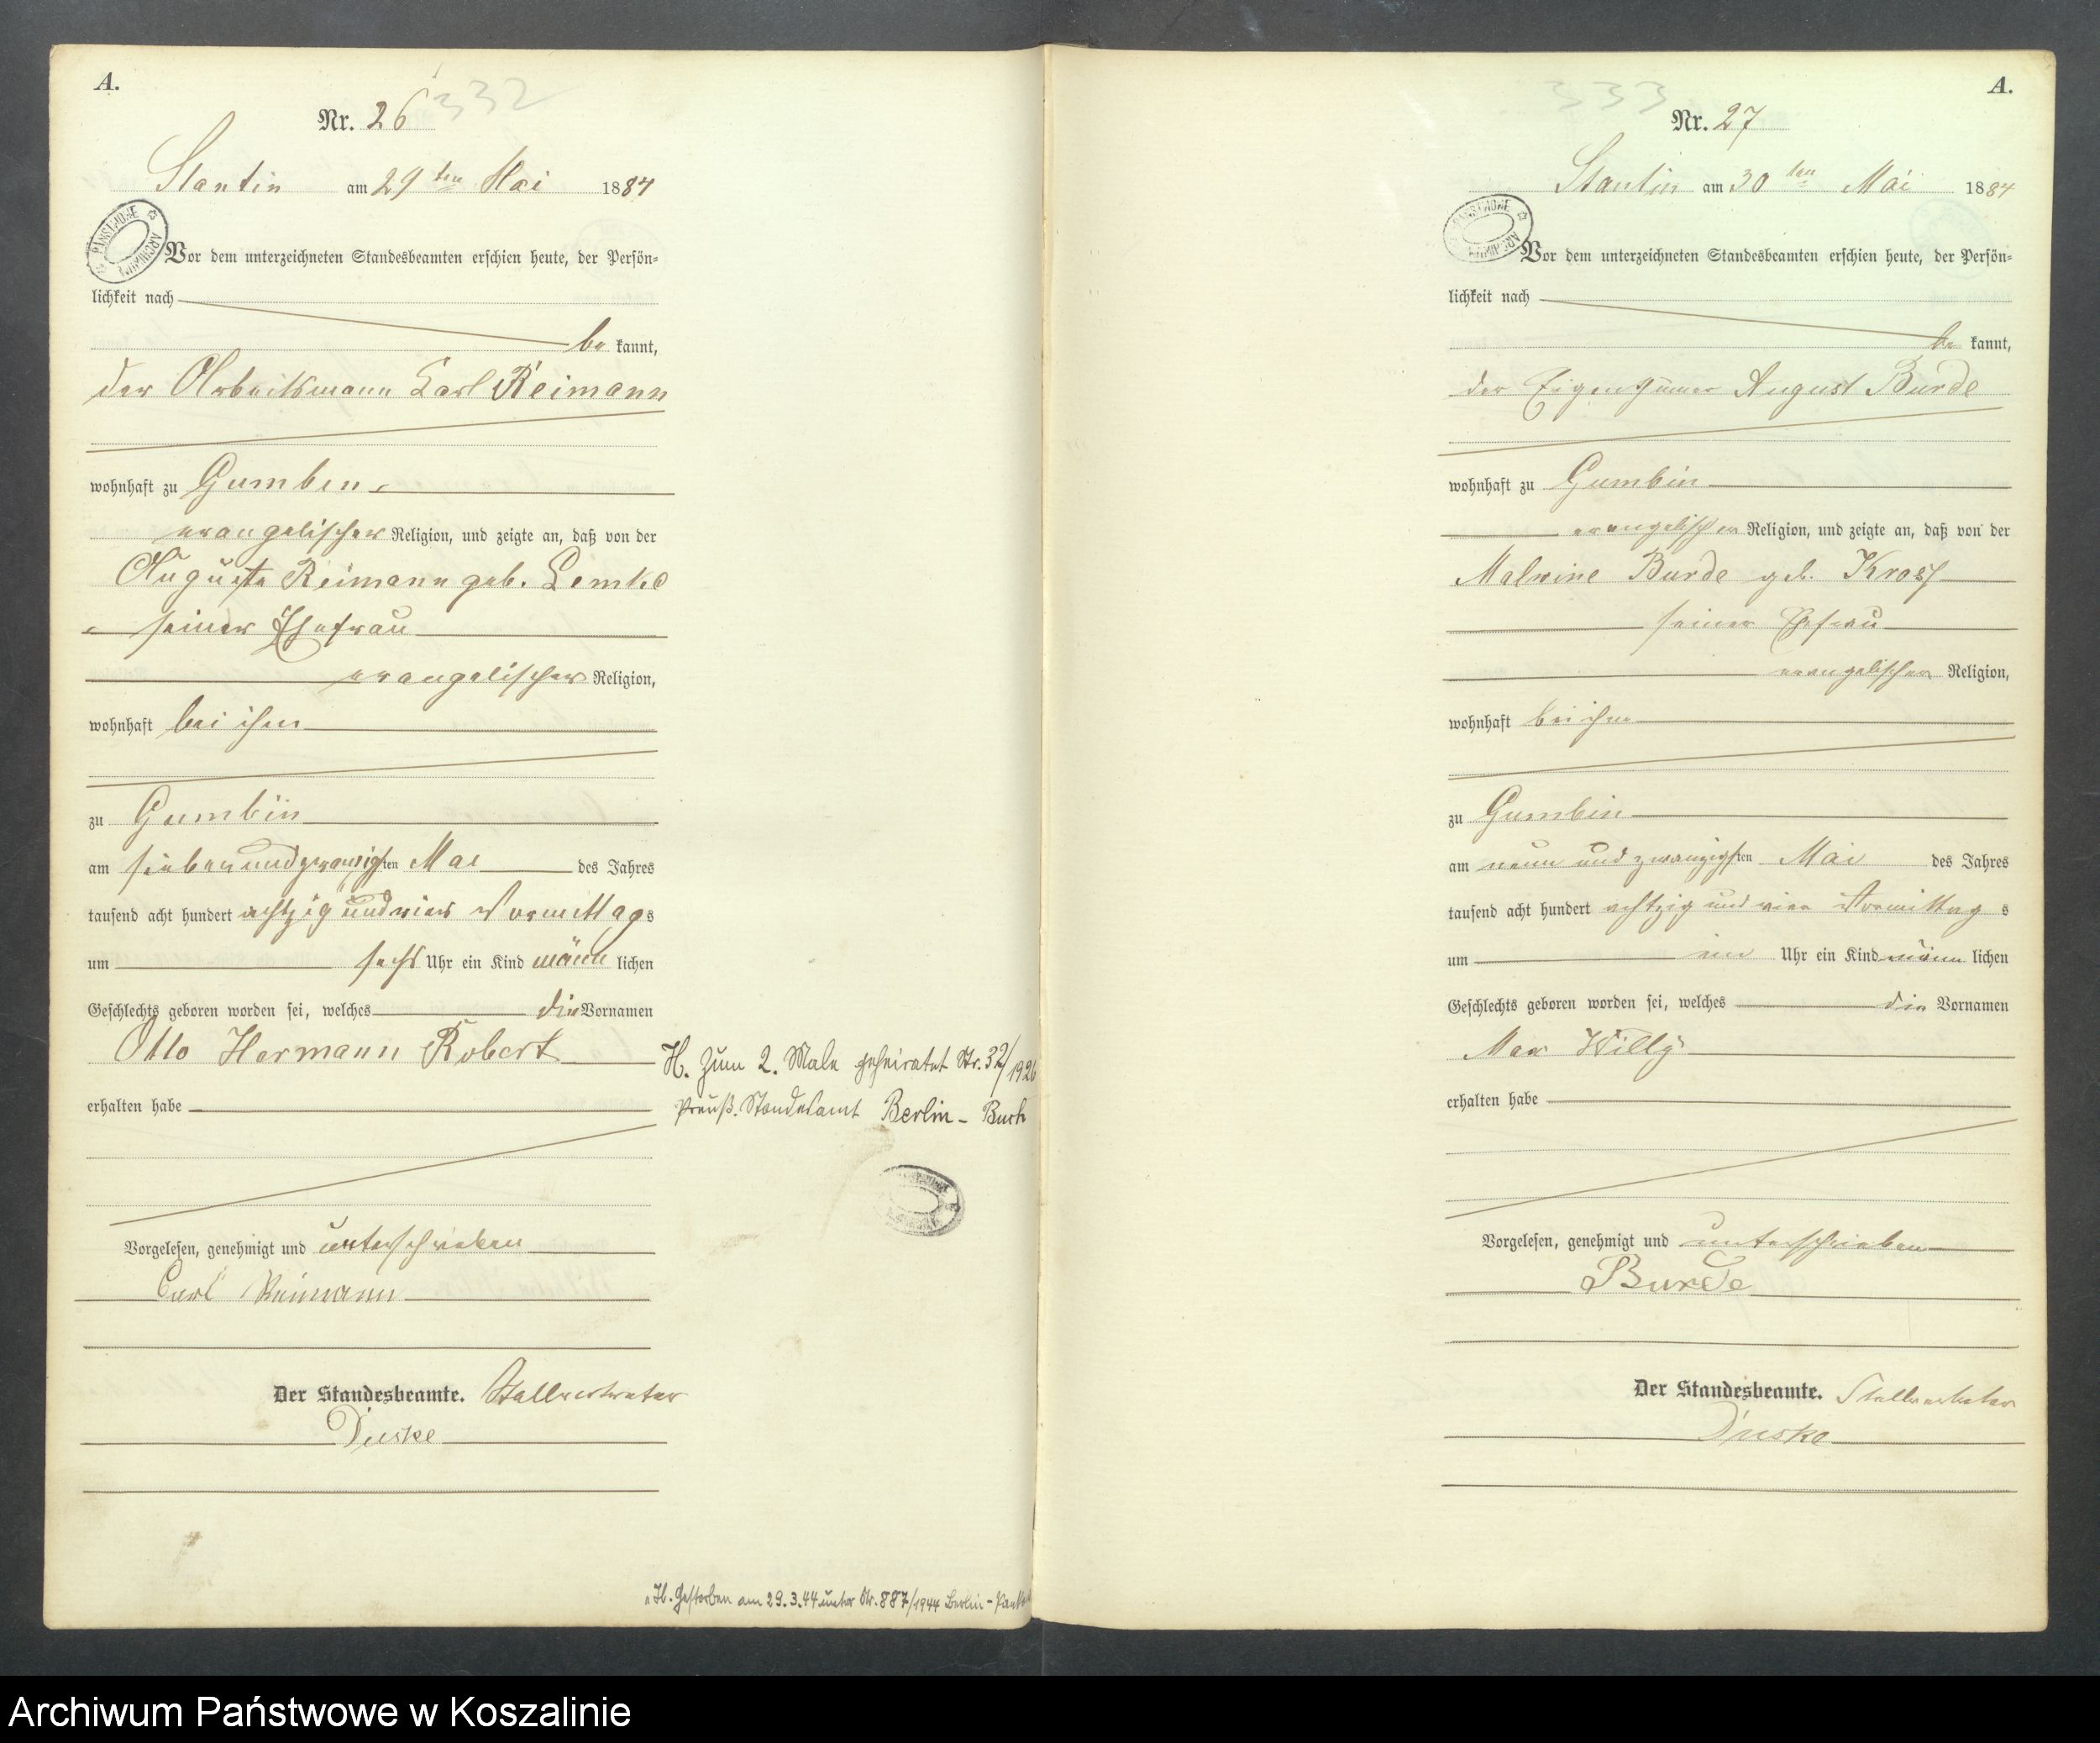 A.
332
Nr. 26
Stantin am 29ten Mai 1884
PAŃSTWOWE ARCHIWUM
Vor dem unterzeichneten Standesbeamten erschien heute, der Persön-
lichkeit nach
be kannt,
der Arbeitsmann Carl Reimann
wohnhaft zu Gumben
evangelischer Religion, und zeigte an, daß von der
Auguste Reimann geb. Lemke
seiner Ehefrau
evangelischer Religion,
wohnhaft bei ihm
zu Gumbin
am siebenundzwanzigsten Mai des Jahres
tausend acht hundert achtzig und vier Vormittags
um sechs Uhr ein Kind männlichen
Geschlechts geboren worden sei, welches die Vornamen
Otto Hermann Robert
erhalten habe
H. Zum 2. Male geheiratet Nr. 32/1926
Preuß. Standesamt Berlin - Buch
Vorgelesen, genehmigt und unterschrieben
Carl Reimann
Der Standesbeamte. Stellvertreter
Duske
H. Gestorben am 29.3.44 unter Nr. 887/1944 Berlin -
A.
333
Nr. 27
Stantin am 30ten Mai 1884
PAŃSTWOWE ARCHIWUM
Vor dem unterzeichneten Standesbeamten erschien heute, der Persön-
lichkeit nach
be kannt,
der Eigenthümer August Burde
wohnhaft zu Gumbin
evangelischer Religion, und zeigte an, daß von der
Malwine Burde geb. Kross
seiner Ehefrau
evangelischer Religion,
wohnhaft bei ihm
zu Gumbin
am neun und zwanzigsten Mai des Jahres
tausend acht hundert achtzig und vier Vormittag s
um ein Uhr ein Kind männ lichen
Geschlechts geboren worden sei, welches die Vornamen
Max Willy
erhalten habe
Vorgelesen, genehmigt und unterschrieben
Burde
Der Standesbeamte. Stellvertreter
Duske
Archiwum Państwowe w Koszalinie